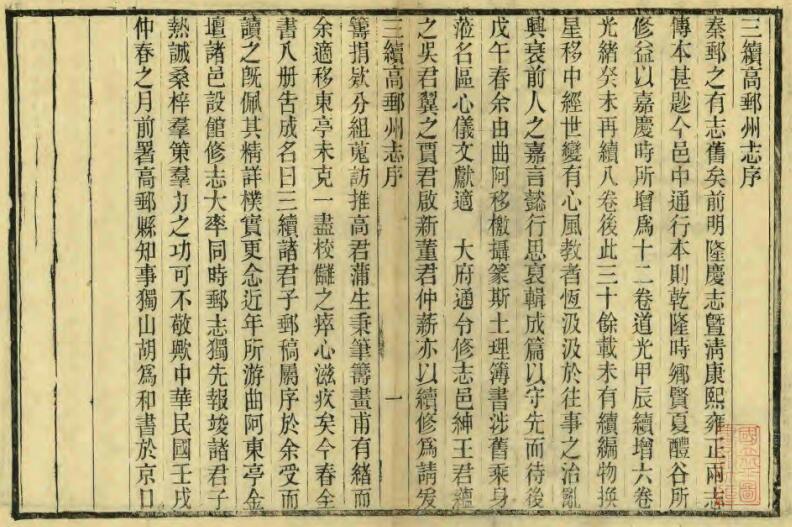 三續高郵州志序
秦郵之有志舊矣前明隆慶志曁淸康熙雍正兩志
傳本甚尠今邑中通行本則乾隆時鄉賢夏醴谷所
修益以嘉慶時所增爲十二卷道光甲辰續增六卷
光緖癸未再續八卷後此三十餘載未有續編物換
星移中經世變有心風教者恆汲汲於往事之治亂
興衰前人之嘉言懿行思裒輯成篇以守先而待後
戊午春余由曲阿移檄攝篆斯土理簿書涉舊乘身
蒞名區心儀文獻適 大府通令修志邑紳王君蘊
之吳君翼之賈君啟新董君仲薪亦以續修爲請爰
三續高郵州志序
一
籌捐欵分組蒐訪推高君蒲生秉筆籌畫甫有緖而
余適移東亭未克一盡校讎之瘁心滋疚矣今春全
書八册吿成名曰三續諸君子郵稿屬序於余受而
讀之旣佩其精詳樸實更念近年所游曲阿東亭金
壇諸邑設館修志大率同時郵志獨先報竣諸君子
熱誠桑梓羣策羣力之功可不敬歟中華民國壬戌
仲春之月前署高郵縣知事獨山胡爲和書於京口